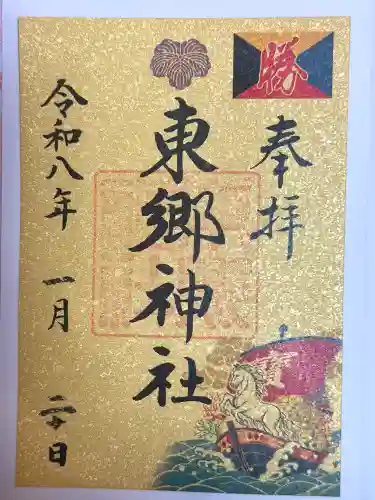 勝
奉拝
東郷神社
令和八年 一月 二十日